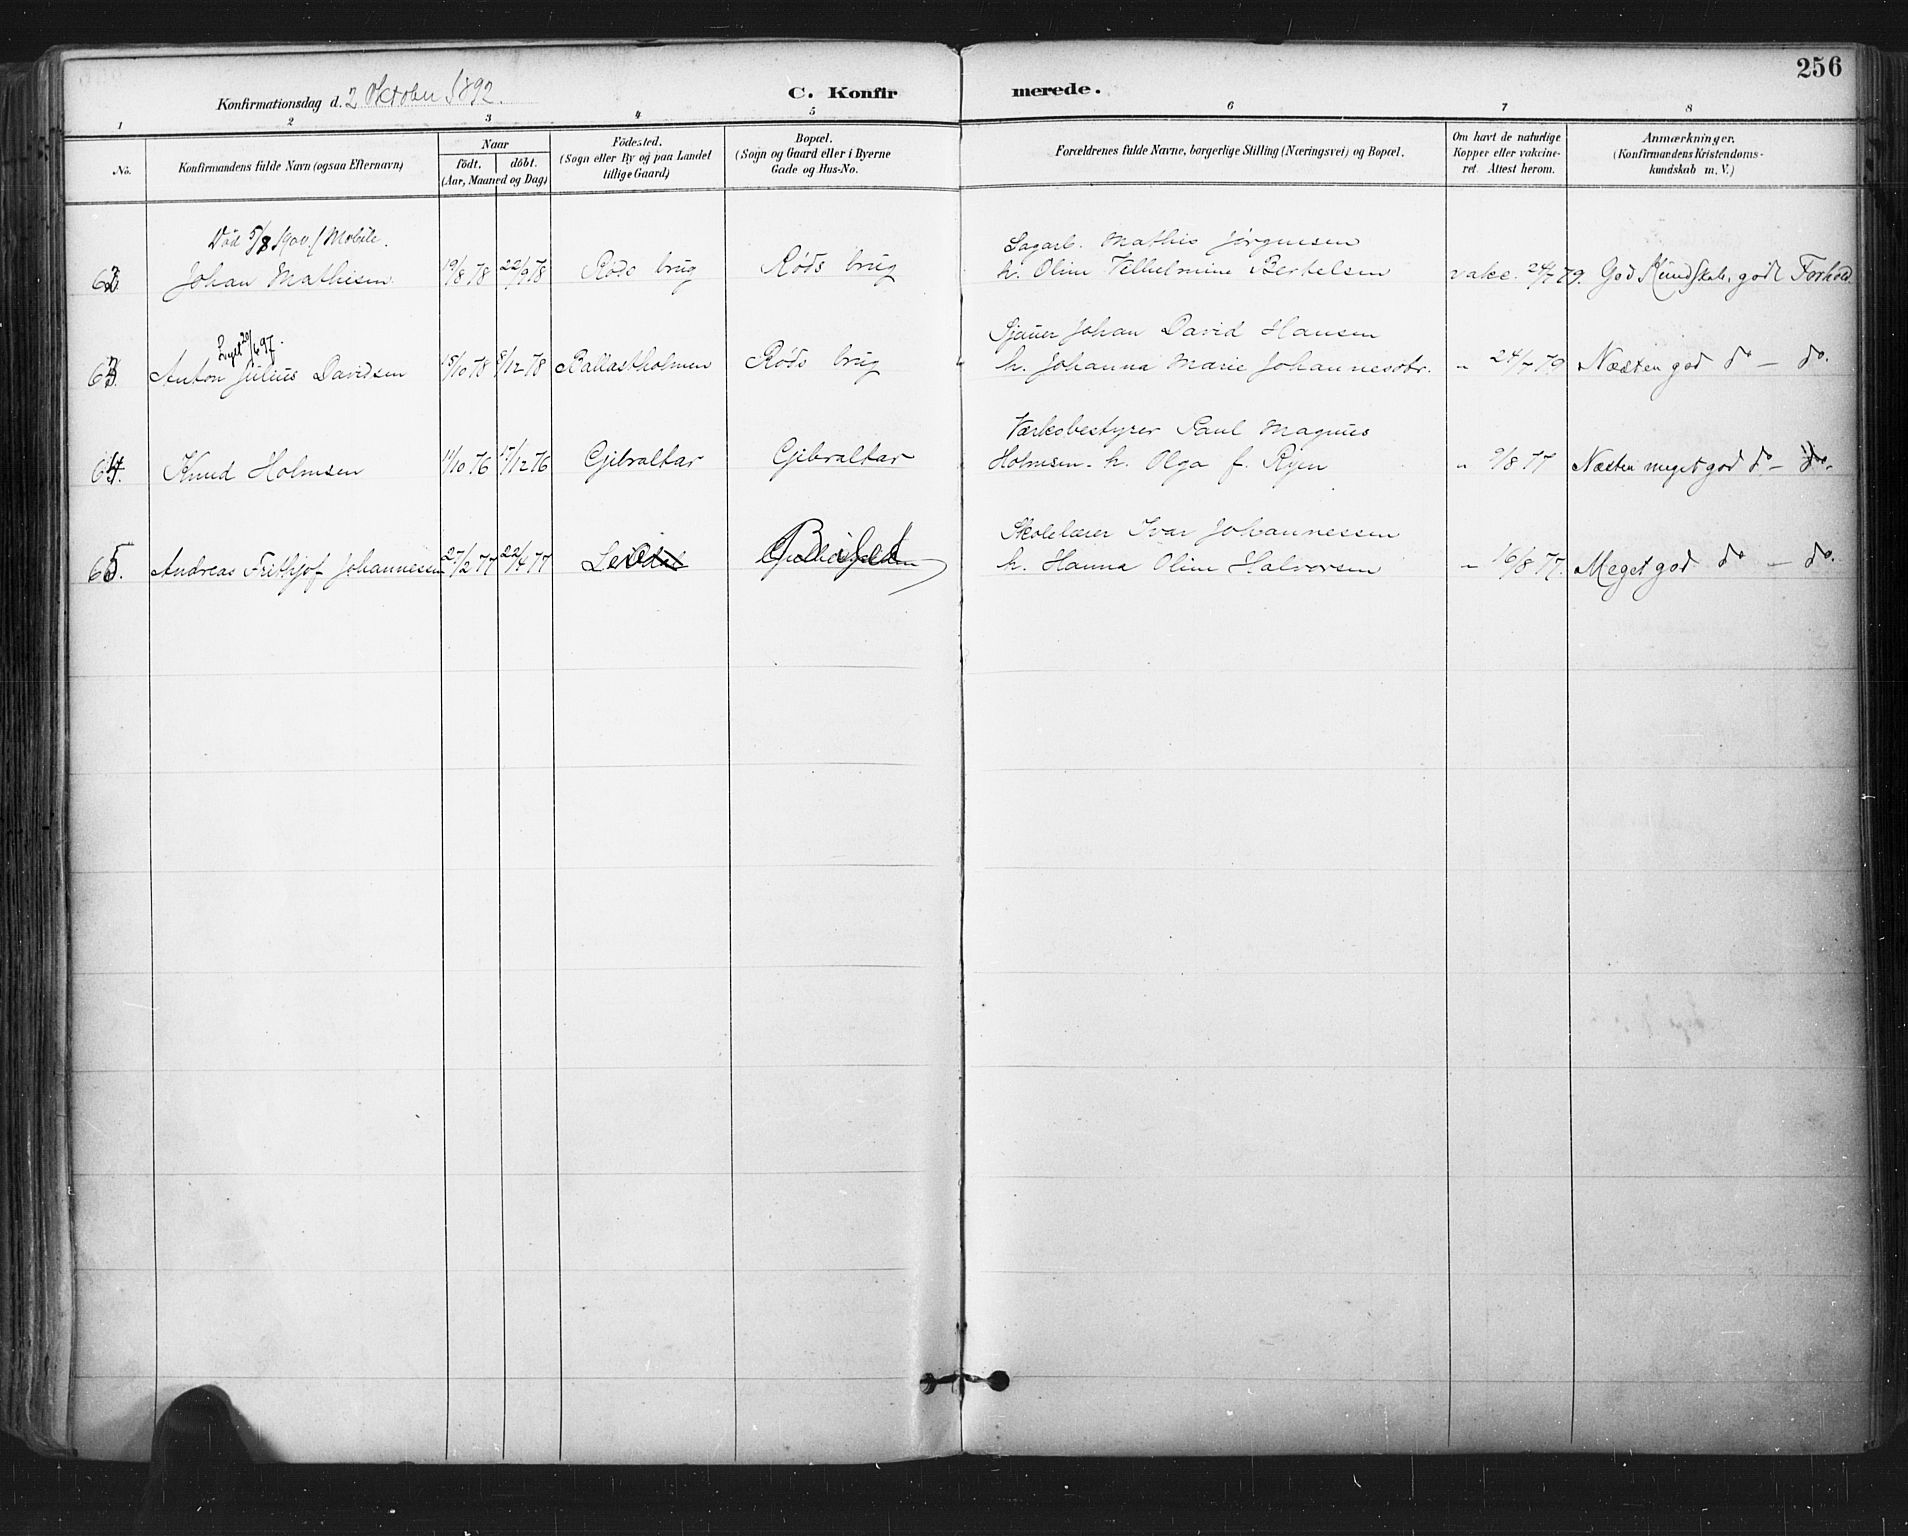 256
Konfirmationsdag d. 2 Oktober 1892.
C. Konfirmerede.
1 2 3 4 5 6 7 8
No.
Konfirmandens fulde Navn (ogsaa Efternavn)
Naar
födt. döbt.
(Aar, Maaned og Dag)
Födested.
(Sogn eller By og paa Landet
tillige Gaard.)
Bopæl.
(Sogn og Gaard eller i Byerne
Gade og Hus-No.
Forældrenes fulde Navne, borgerlige Stilling (Næringsvei) og Bopæl.
Om havt de naturlige
Kopper eller vakcine-
ret. Attest herom.
Anmærkninger.
(Konfirmandens Kristendoms-
kundskab m. V.)
Död 5/8 1900 / Mobile.
Sagarb. Mathis Jørgensen
62. Johan Mathisen. 19/8 78 22/9 78 Røds brug Røds brug h. Oline Vilhelmine Bertelsen vakc. 24/7 79. God Kundskab, godt Forhold.
20/4 97.
Sjauer Johan David Hansen
63. Anton Julius Davidsen 15/10 78 8/12 78 Ballastholmen Røds brug h. Johanna Marie Johannesdtr. " 24/7 79 Næsten god do — do.
Værksbestyrer Paul Magnus
64. Knud Holmsen 11/10 76 17/12 76 Gibraltar Gibraltar Holmsen - h. Olga f. Ryen " 9/8 77 Næsten meget god do — do.
Skolelærer Ivar Johannessen
65. Andreas Frithjof Johannessen 27/2 77 22/4 77 h. Hanna Oline Halvorsen " 16/8 77. Meget god do — do.